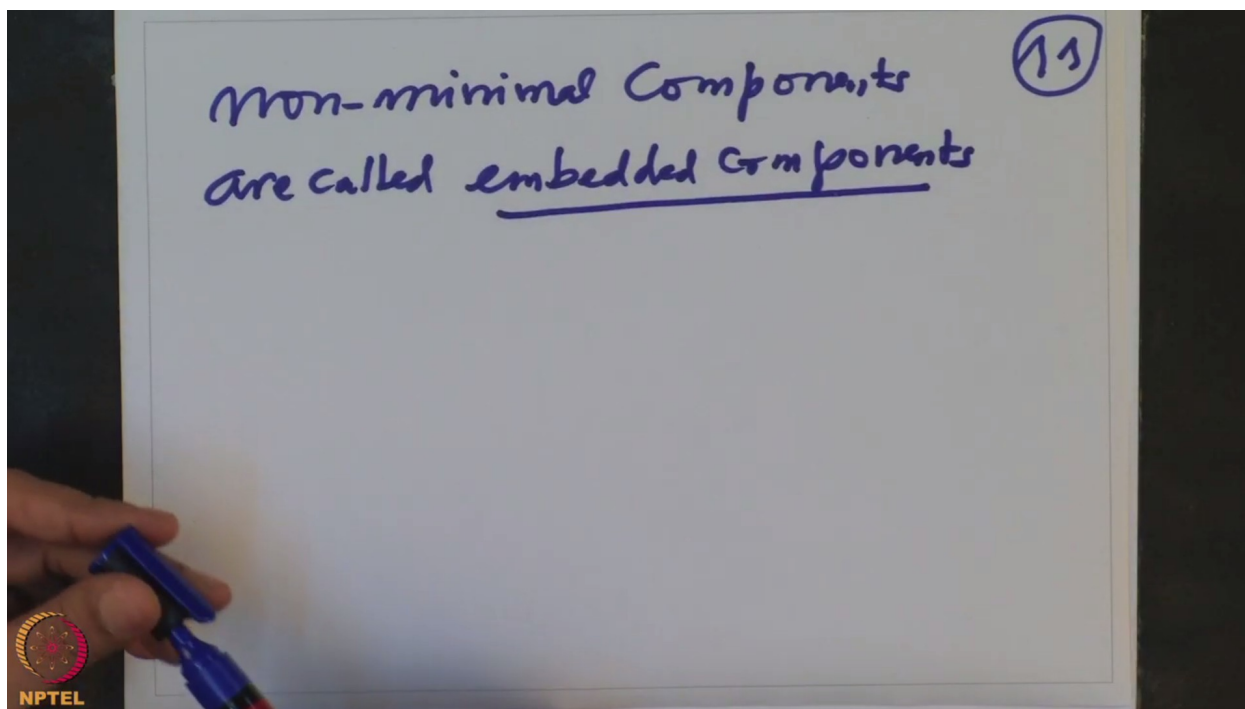 non-minimal Components
11
are called embedded components
NPTEL